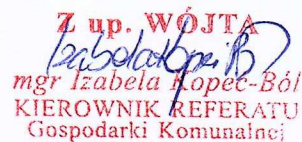 Z up. WÓJTA
Izabela Kopeć-Ból
mgr Izabela Kopeć-Ból
KIEROWNIK REFERATU
Gospodarki Komunalnej